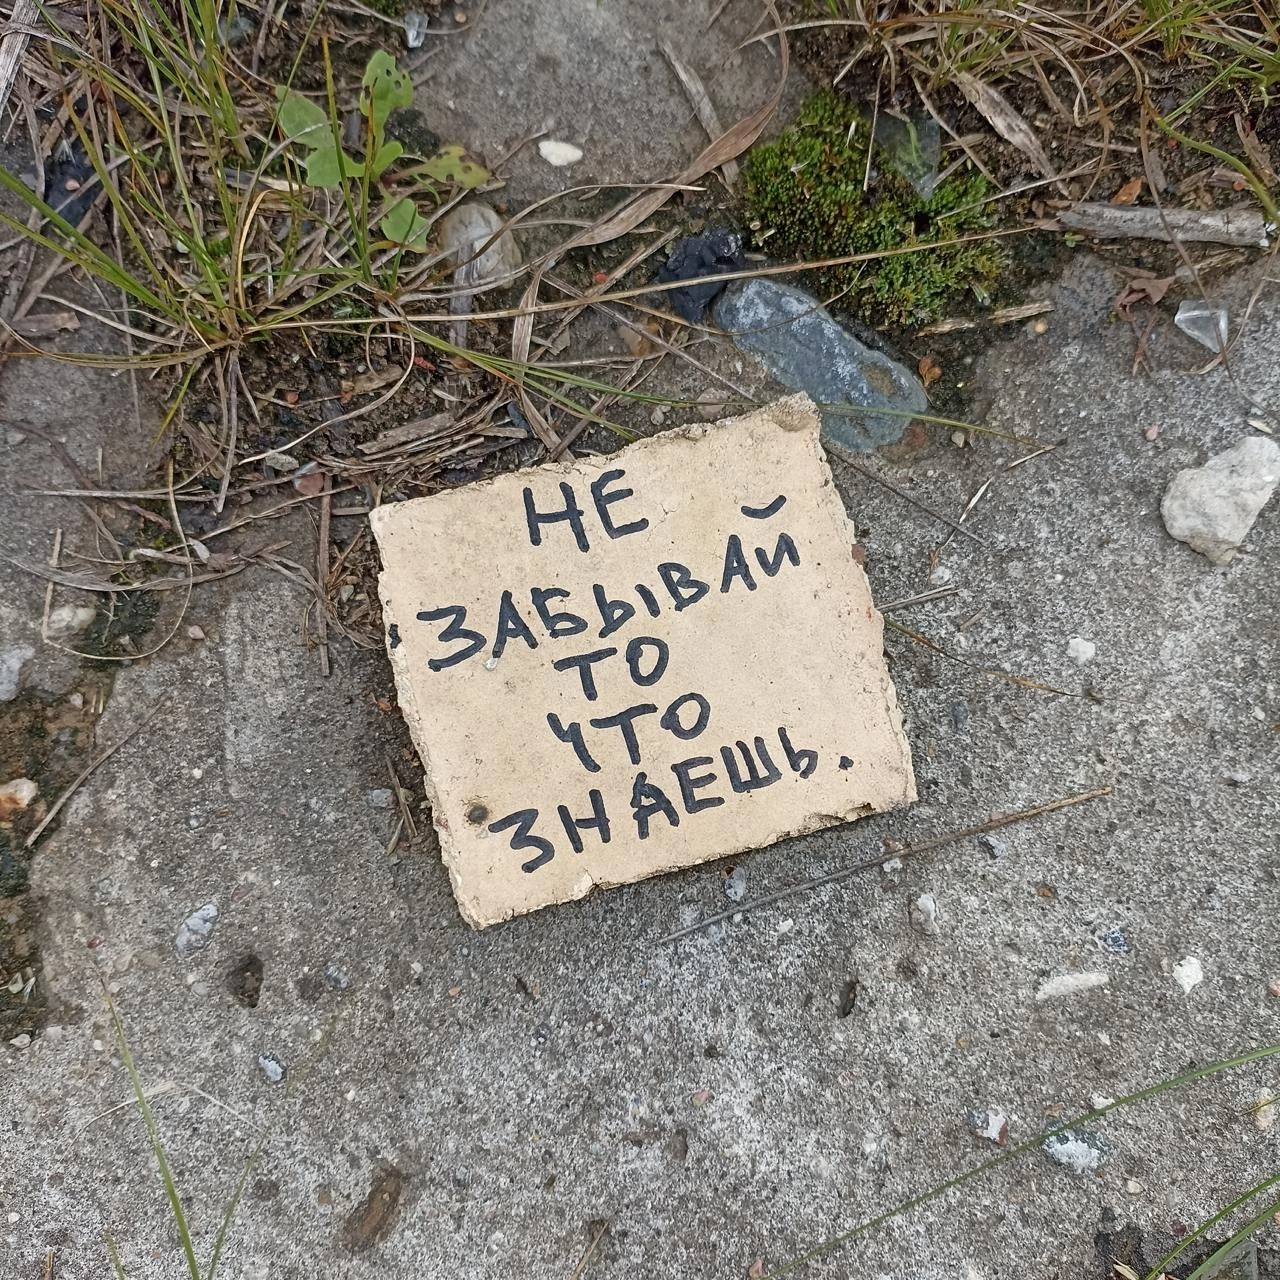 НЕ
ЗАБЫВАЙ
ТО
ЧТО
ЗНАЕШЬ.